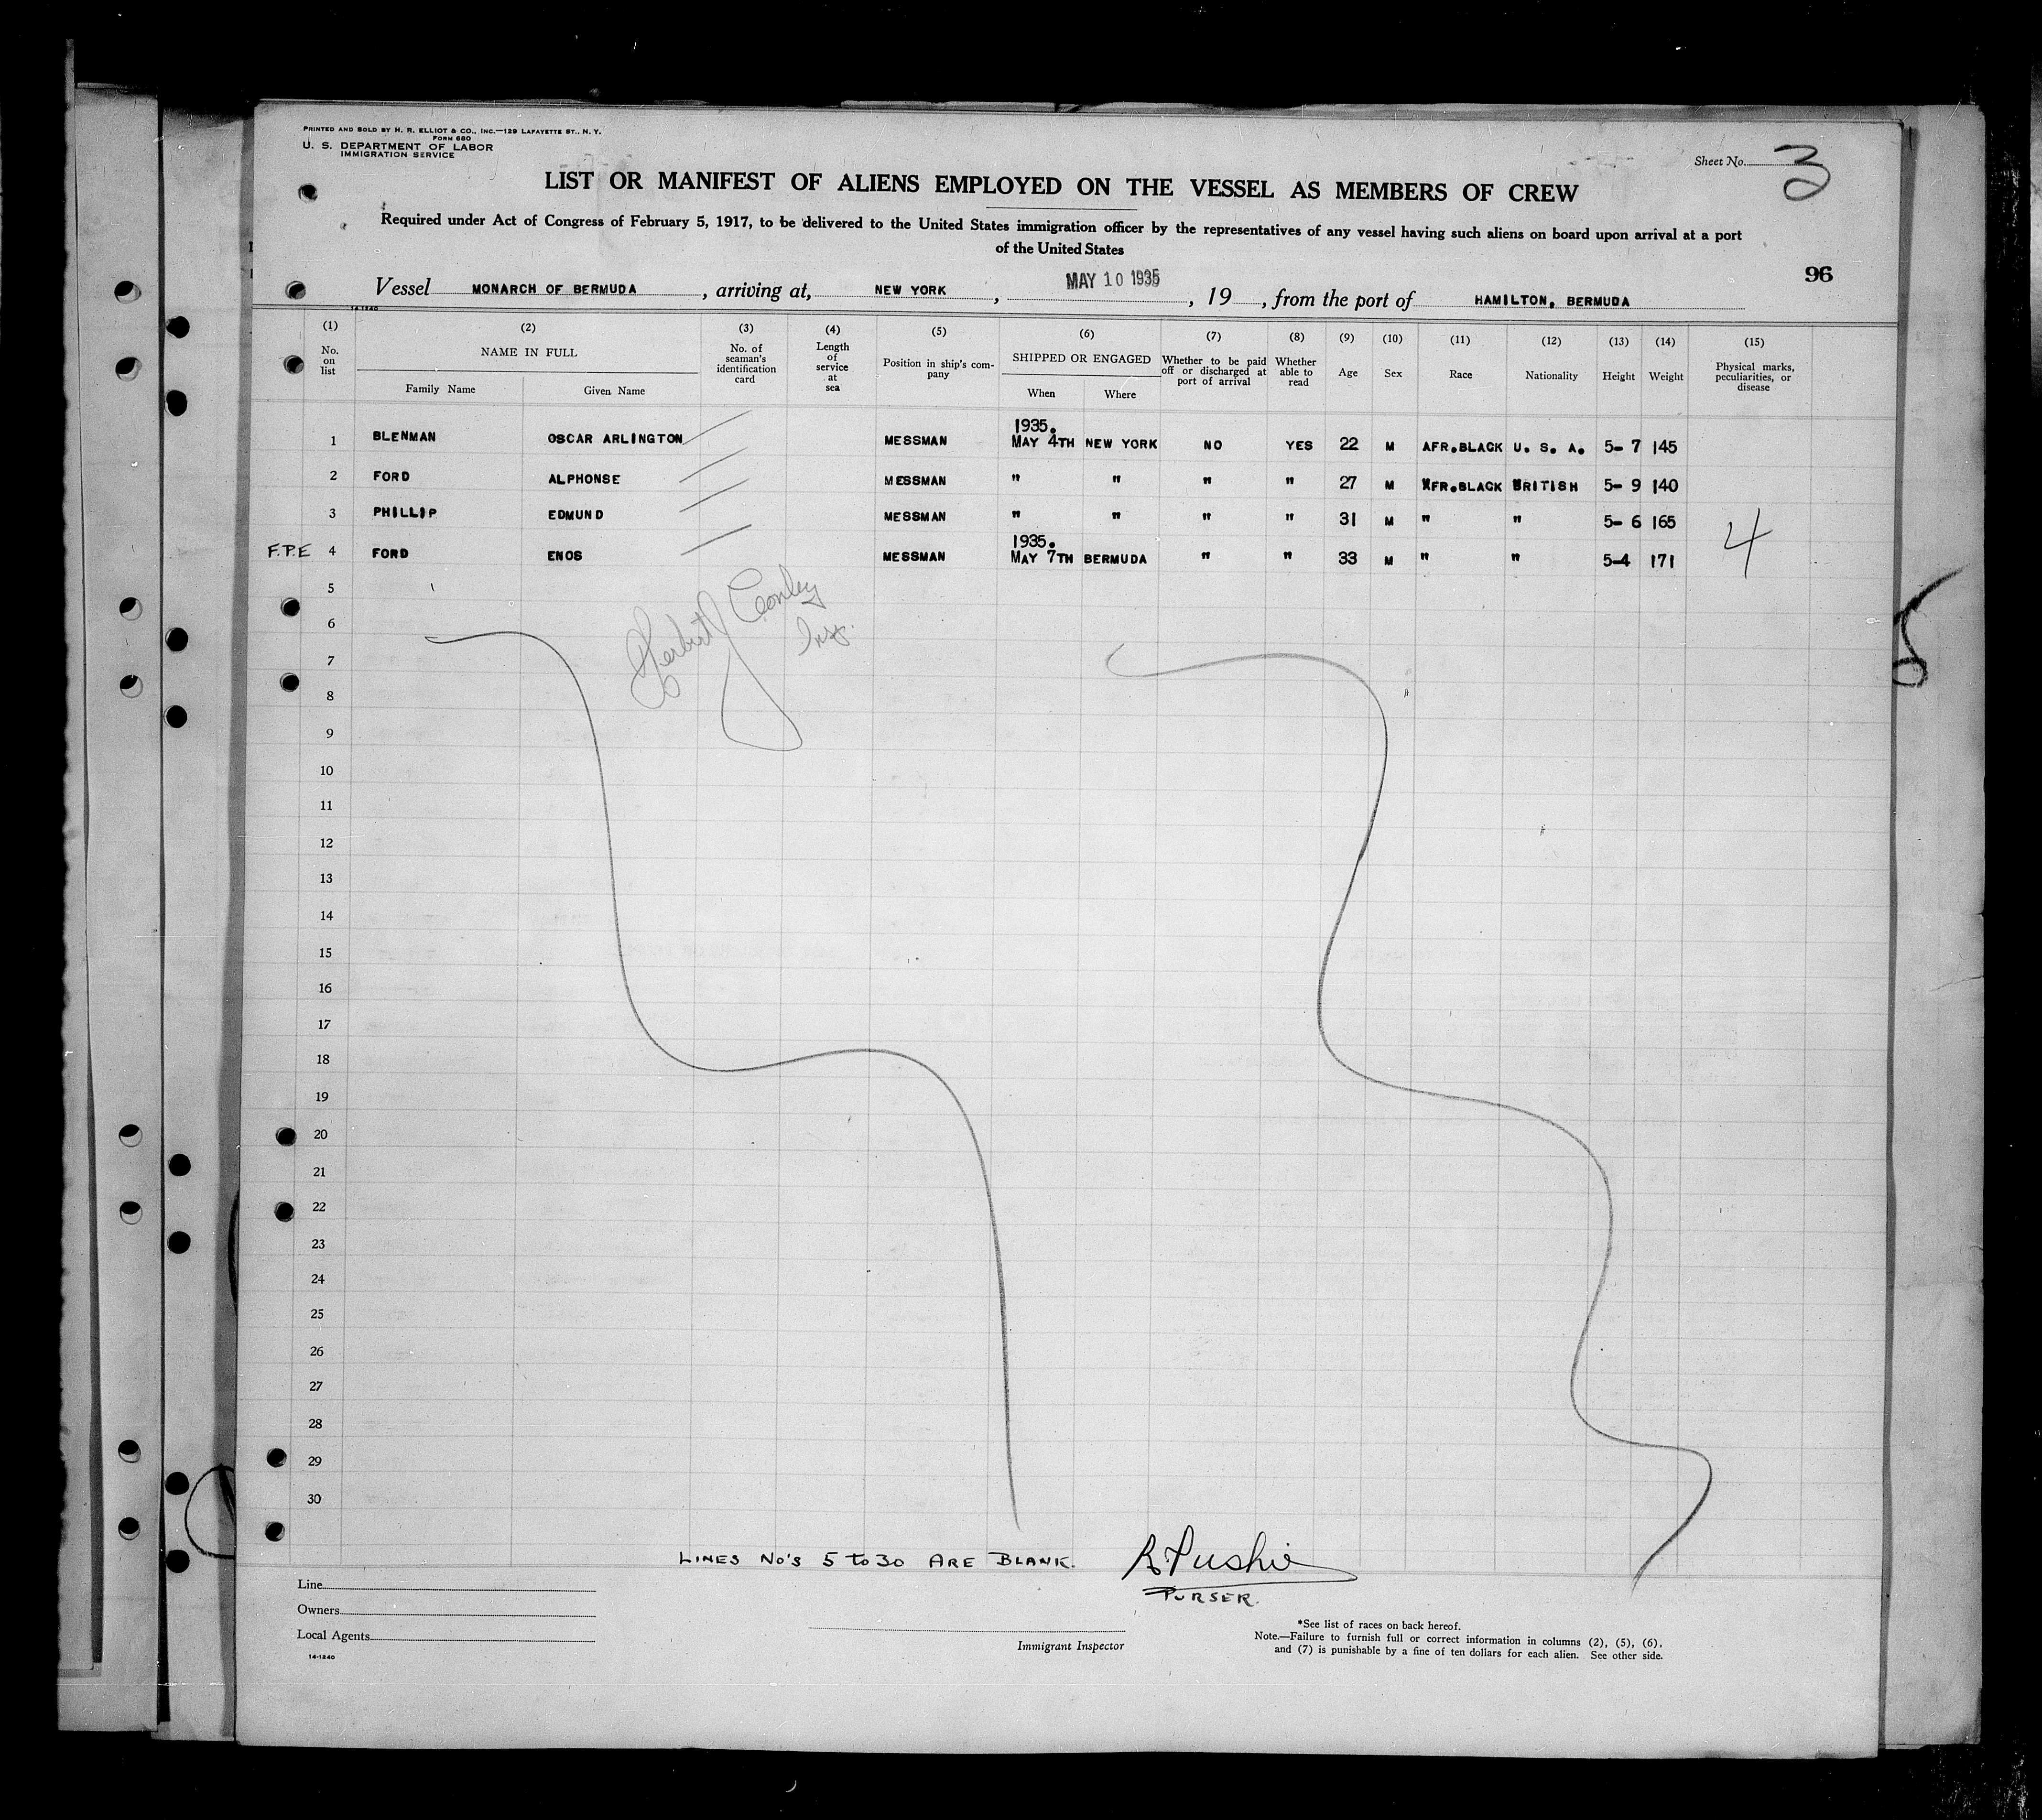 PRINTED AND SOLD BY H. R. ELLIOT & CO., INC.—129 LAFAYETTE ST., N. Y.
FORM 680
U. S. DEPARTMENT OF LABOR
IMMIGRATION SERVICE
Sheet No. 3
LIST OR MANIFEST OF ALIENS EMPLOYED ON THE VESSEL AS MEMBERS OF CREW
Required under Act of Congress of February 5, 1917, to be delivered to the United States immigration officer by the representatives of any vessel having such aliens on board upon arrival at a port
of the United States
96
Vessel MONARCH OF BERMUDA, arriving at, NEW YORK, MAY 10 1935, 19, from the port of HAMILTON, BERMUDA
14-1240
(1) (2) (3) (4) (5) (6) (7) (8) (9) (10) (11) (12) (13) (14) (15)
No. on list NAME IN FULL Family Name Given Name No. of seaman's identification card Length of service at sea Position in ship's company SHIPPED OR ENGAGED When Where Whether to be paid off or discharged at port of arrival Whether able to read Age Sex Race Nationality Height Weight Physical marks, peculiarities, or disease
1935.
1 BLENMAN OSCAR ARLINGTON MESSMAN MAY 4TH NEW YORK NO YES 22 M AFR.BLACK U. S. A. 5- 7 145
2 FORD ALPHONSE MESSMAN " " " " 27 M AFR.BLACK BRITISH 5- 9 140
3 PHILLIP EDMUND MESSMAN " " " " 31 M " " 5- 6 165
1935.
F.P.E 4 FORD ENOS MESSMAN MAY 7TH BERMUDA " " 33 M " " 5-4 171
4
5
6
7
8
9
10
11
12
13
14
15
16
17
18
19
20
21
22
23
24
25
26
27
28
29
30
Herbert J Conley
Insp.
5
LINES NO'S 5 TO 30 ARE BLANK. R. Pushie
PURSER.
Line
Owners
Local Agents
14-1240
Immigrant Inspector
*See list of races on back hereof.
Note.—Failure to furnish full or correct information in columns (2), (5), (6),
and (7) is punishable by a fine of ten dollars for each alien. See other side.